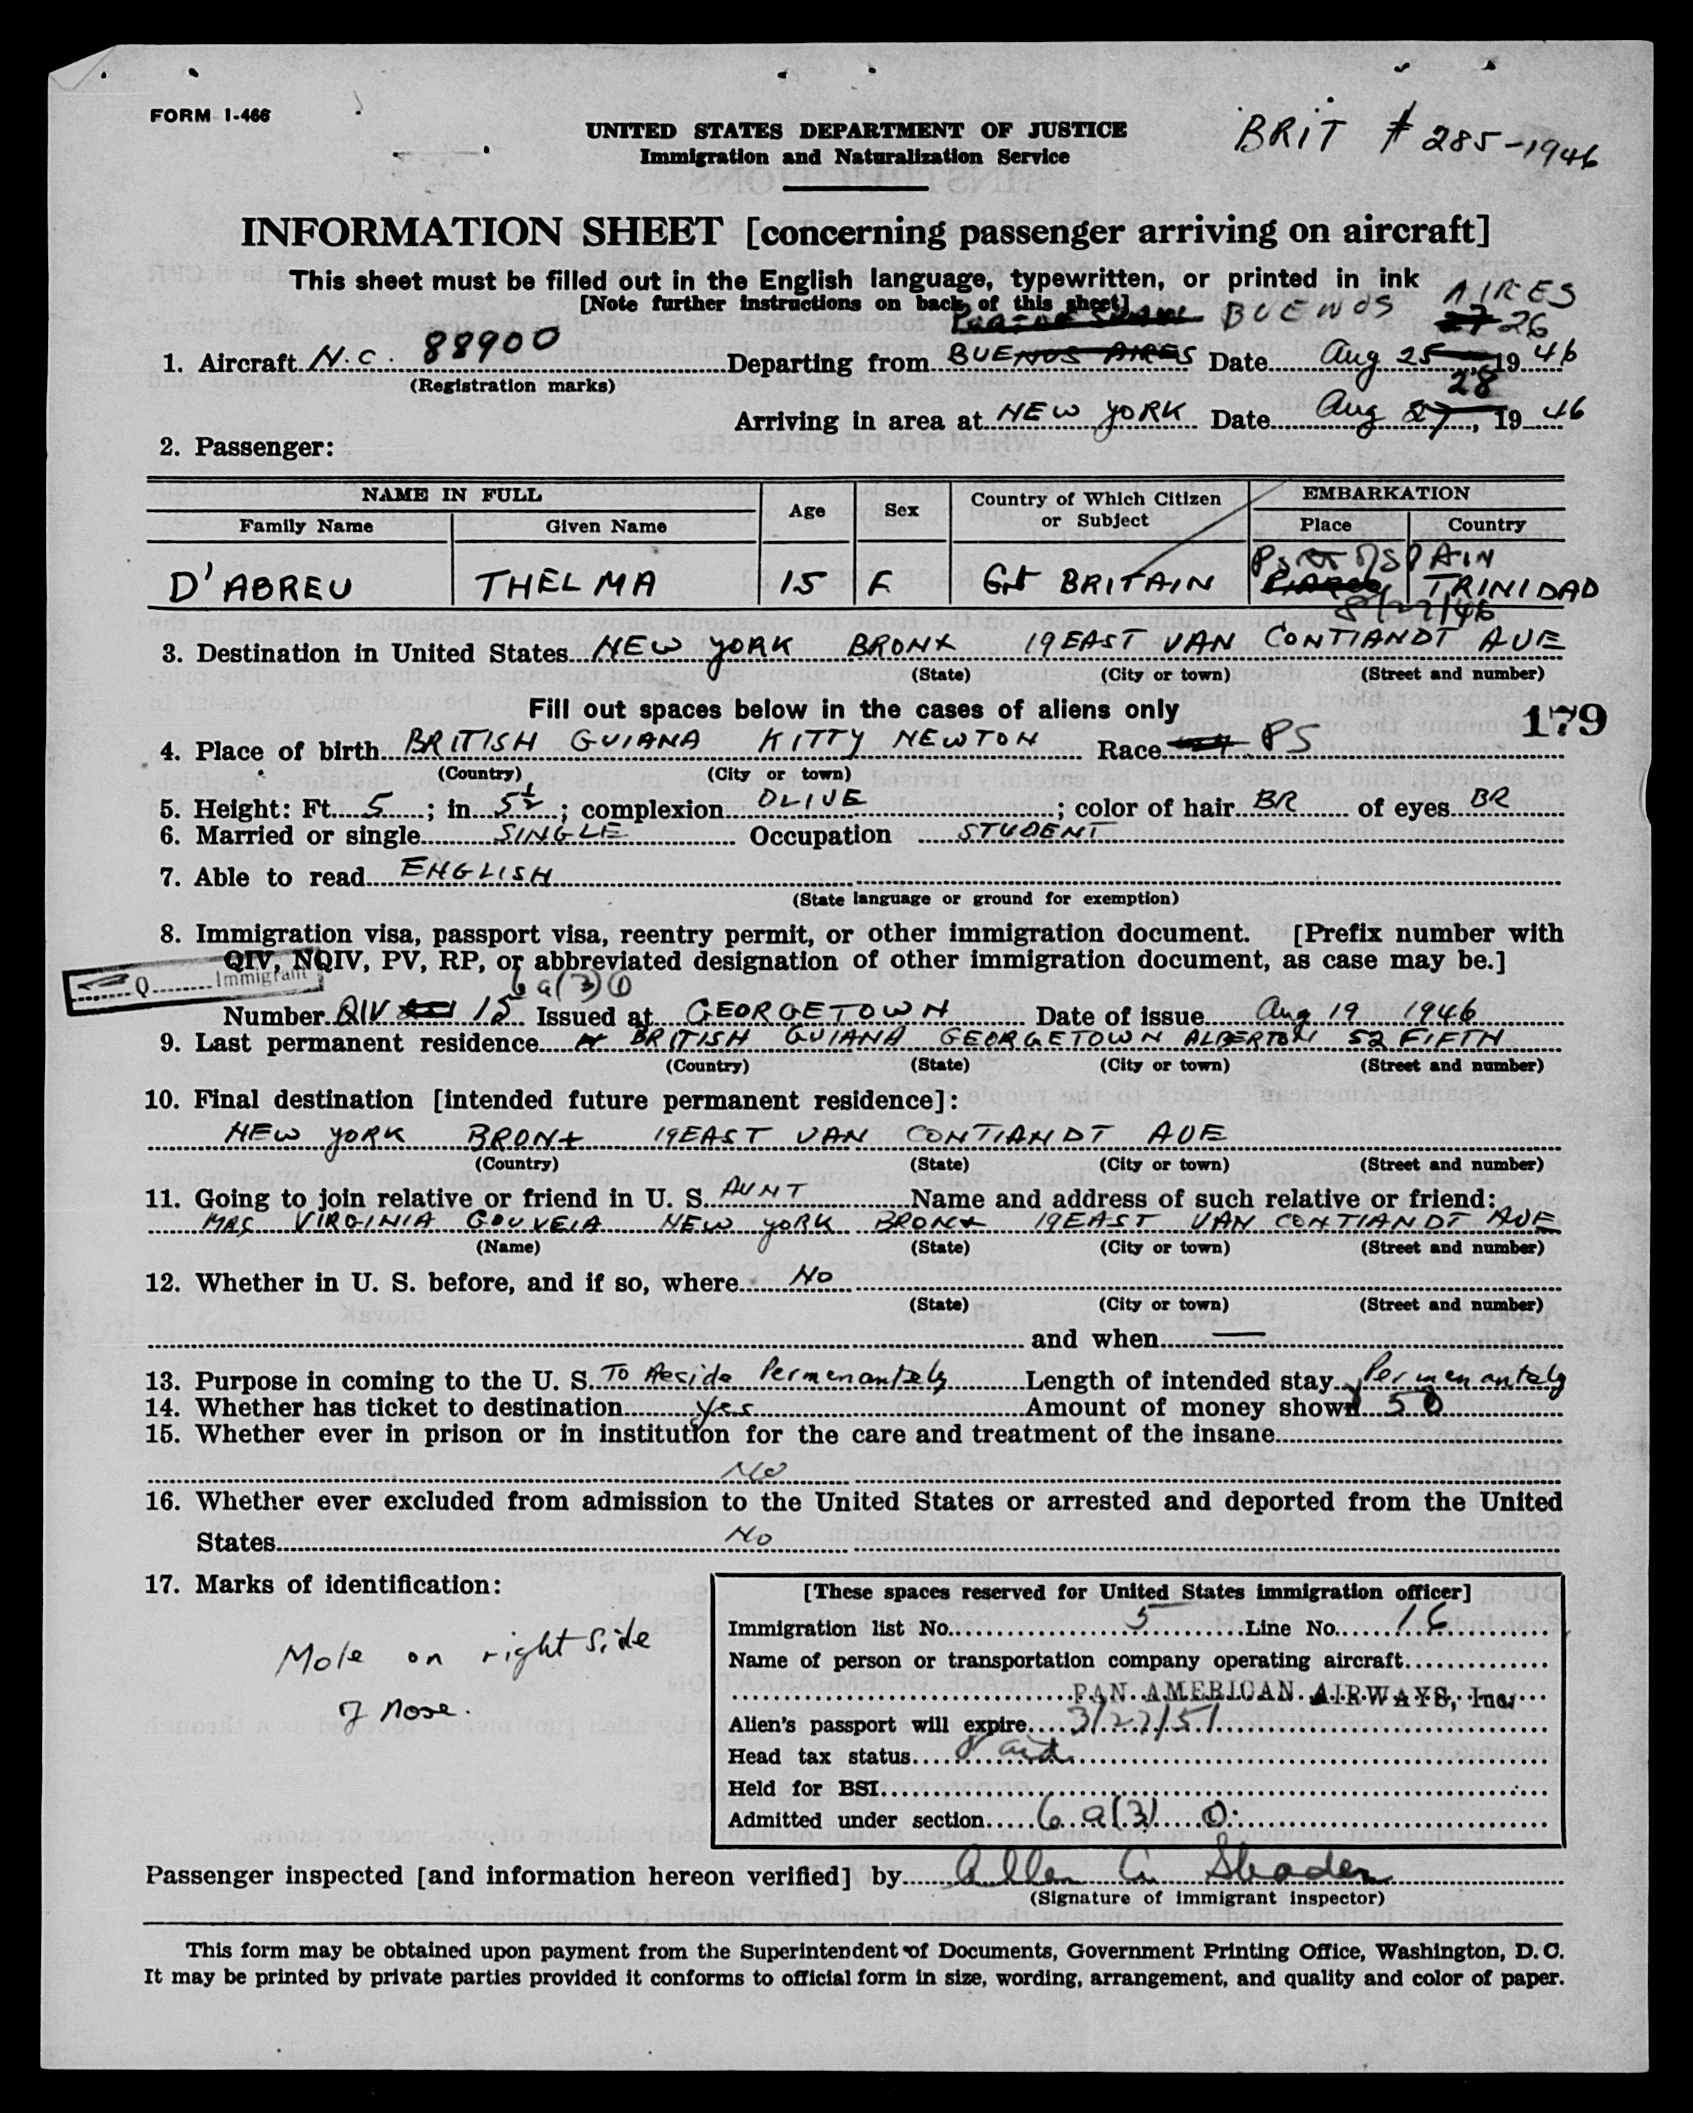 FORM I-466
UNITED STATES DEPARTMENT OF JUSTICE
Immigration and Naturalization Service
BRIT # 285-1946
INFORMATION SHEET [concerning passenger arriving on aircraft]
This sheet must be filled out in the English language, typewritten, or printed in ink
[Note further instructions on back of this sheet]
BUENOS AIRES
26
1. Aircraft N.C. 88900 Departing from BUENOS AIRES Date Aug 25, 1946
(Registration marks)
28
Arriving in area at NEW YORK Date Aug 27, 1946
2. Passenger:
NAME IN FULL Age Sex Country of Which Citizen or Subject EMBARKATION
Family Name Given Name Place Country
PORT OF SPAIN
D'ABREU THELMA 15 F Gt BRITAIN PIARCO TRINIDAD
8/27/46
3. Destination in United States NEW YORK BRONX 19 EAST VAN CONTIANDT AVE
(State) (City or town) (Street and number)
Fill out spaces below in the cases of aliens only
179
4. Place of birth BRITISH GUIANA KITTY NEWTON Race PS
(Country) (City or town)
5. Height: Ft. 5; in. 5½; complexion OLIVE; color of hair BR of eyes BR
6. Married or single SINGLE Occupation STUDENT
7. Able to read ENGLISH
(State language or ground for exemption)
8. Immigration visa, passport visa, reentry permit, or other immigration document. [Prefix number with
QIV, NQIV, PV, RP, or abbreviated designation of other immigration document, as case may be.]
Q Immigrant
6a(3)0
Number QIV 15 Issued at GEORGETOWN Date of issue Aug 19 1946
9. Last permanent residence BRITISH GUIANA GEORGETOWN ALBERTON 52 FIFTH
(Country) (State) (City or town) (Street and number)
10. Final destination [intended future permanent residence]:
NEW YORK BRONX 19 EAST VAN CONTIANDT AVE
(Country) (State) (City or town) (Street and number)
11. Going to join relative or friend in U. S. AUNT Name and address of such relative or friend:
MRS VIRGINIA GOUVEIA NEW YORK BRONX 19 EAST VAN CONTIANDT AVE
(Name) (State) (City or town) (Street and number)
12. Whether in U. S. before, and if so, where No
(State) (City or town) (Street and number)
and when —
13. Purpose in coming to the U. S. To Reside Permenantely Length of intended stay Permenantely
14. Whether has ticket to destination Yes Amount of money shown 50
15. Whether ever in prison or in institution for the care and treatment of the insane
No
16. Whether ever excluded from admission to the United States or arrested and deported from the United
States No
17. Marks of identification:
Mole on right side
of nose.
[These spaces reserved for United States immigration officer]
Immigration list No. 5 Line No. 16
Name of person or transportation company operating aircraft
PAN AMERICAN AIRWAYS, Inc.
Alien's passport will expire 3/22/51
Head tax status Paid
Held for BSI
Admitted under section 6a(3) 0
Passenger inspected [and information hereon verified] by Allen
(Signature of immigrant inspector)
This form may be obtained upon payment from the Superintendent of Documents, Government Printing Office, Washington, D. C.
It may be printed by private parties provided it conforms to official form in size, wording, arrangement, and quality and color of paper.